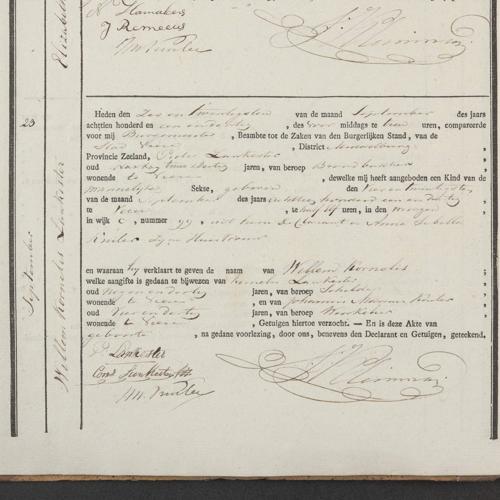 Elizabeth
P. Hamakers
J Remeeus
JM Kinler
23
September
Willem Kornelis Lankester
Heden den Zes en Twintigsten van de maand September des jaars
achttien honderd en een en dertig, des voor middags te tien uren, compareerde
voor mij Burgemeester, Beambte tot de Zaken van den Burgerlijken Stand, van de
Stad Veere, District
Provincie Zeeland, Pieter Lankester
oud jaren, van beroep Broodbakker
wonende te Veere, dewelke mij heeft aangeboden een Kind van de
mannelijke Sekse, geboren den Vier en twintigsten
van de maand September des jaars achttien honderd een en dertig
te Veere, te half elf uren, in den morgen
in wijk C, nummer 99, uit hem declarant en Anna Isabella
Kinler Zijne Huisvrouw
en waaraan hij verklaart te geven de naam van Willem Kornelis
welke aangifte is gedaan te bewijzen van Kornelis Lankester
oud Negen en dertig jaren, van beroep
wonende te Veere, en van Johannis Kinler
oud Vier en dertig jaren, van beroep
wonende te Veere, Getuigen hiertoe verzocht. — En is deze Akte van
geboorte, na gedane voorlezing, door ons, benevens den Declarant en Getuigen, geteekend.
P. Lankester
Corns Lankester
JM Kinler